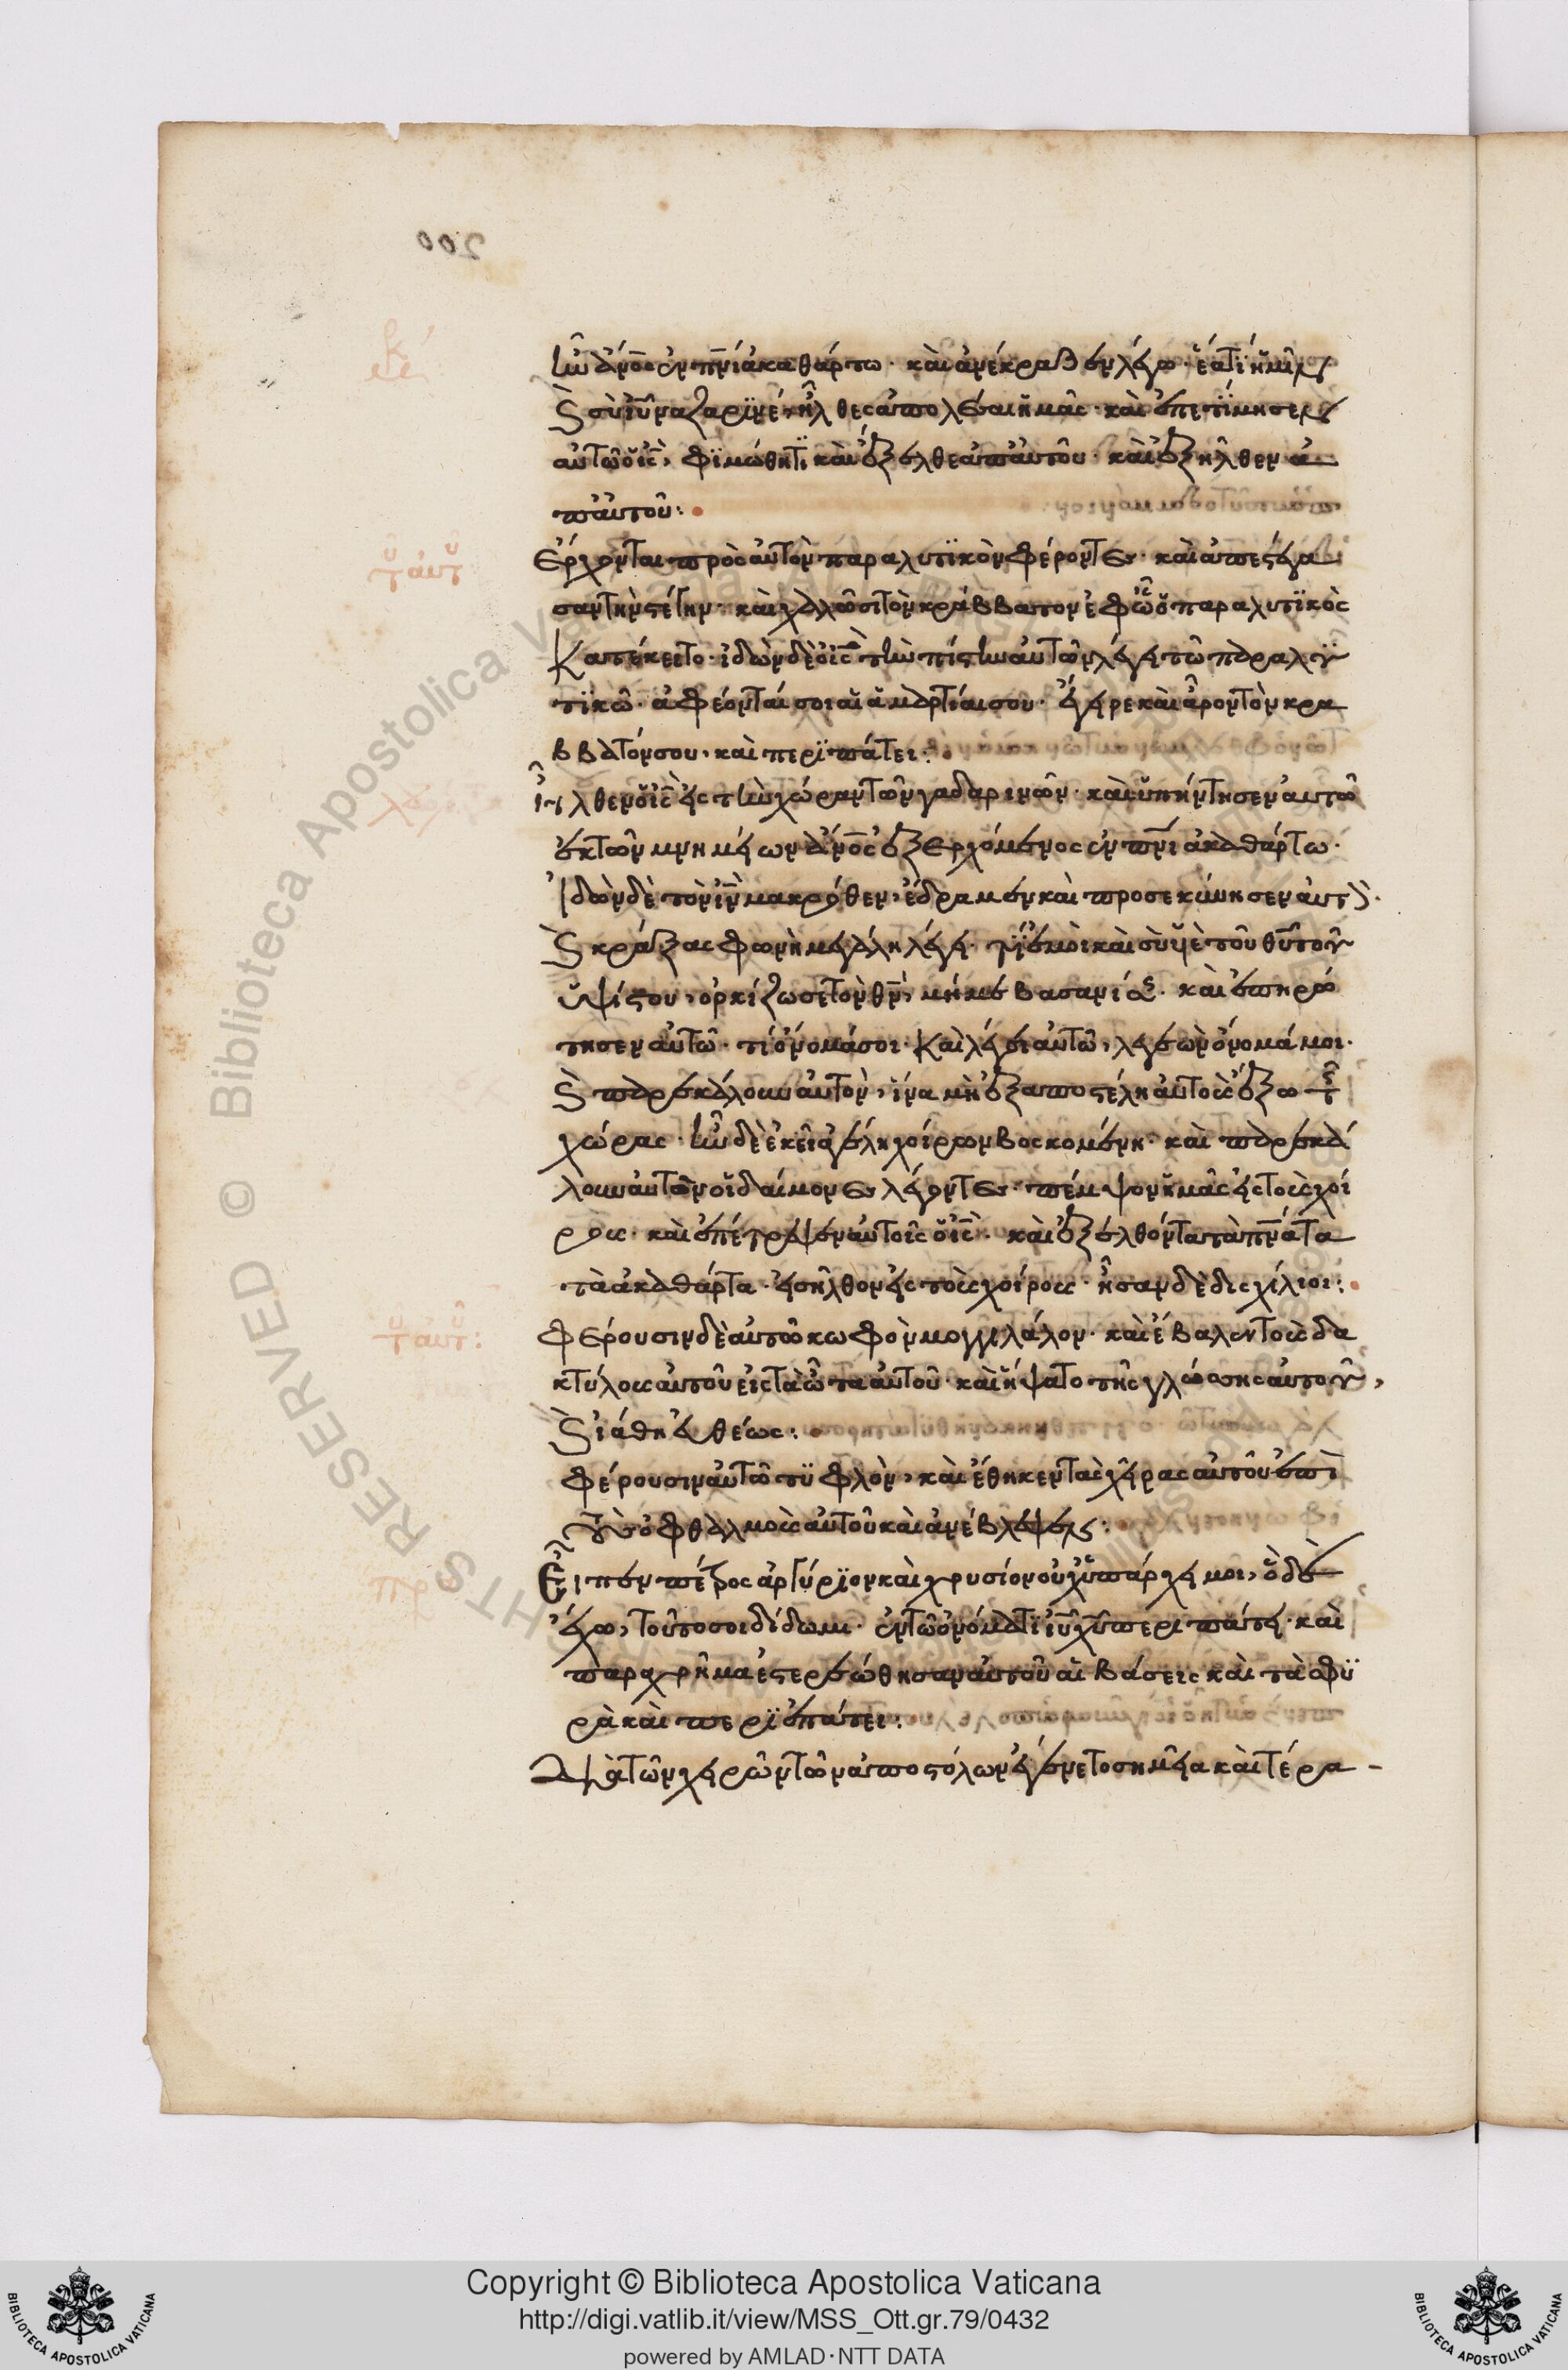 ἦν ἄνος ἐν πνι ἀκαθάρτω· καὶ ἀνέκραξεν λέγων· ἔα τί ἡμῖν
καὶ σὺ ἰυ ναζαρινέ, ἦλθες ἀπολέσαι ἡμᾶς· καὶ ἐπετίμησεν
αὐτῶ ὁ ις, φιμώθητι καὶ ἔξελθε ἀπ' αὐτοῦ· καὶ ἐξῆλθεν ἀ
π' αὐτοῦ:
Ἔρχονται πρὸς αὐτὸν παραλυτικὸν φέροντες· καὶ ἀπεστέγα
σαν τὴν στέγην· καὶ χαλῶσι τὸν κράββατον ἐφ' ὧ ὁ παραλυτικὸς
κατέκειτο· ἰδὼν δὲ ὁ ις τὴν πίστιν αὐτῶν λέγει τῶ παραλυ
τικῶ· ἀφέονταί σοι αἱ ἁμαρτίαι σου· ἔγειρε καὶ ἆρον τὸν κρα
ββατόν σου, καὶ περιπάτει:
Ἦλθεν ὁ ις εἰς τὴν χώραν τῶν γαδαρινῶν· καὶ ὑπήντησεν αὐτῶ
ἐκ τῶν μνημείων ἄνος ἐξερχόμενος ἐν πνι ἀκαθάρτω·
ἰδὼν δὲ τὸν ιν μακρόθεν, ἔδραμεν καὶ προσεκύνησεν αὐτόν·
καὶ κράξας φωνῆ μεγάλη λέγει· τί ἐμοὶ καὶ σὺ υἱὲ τοῦ θυ τοῦ
ὑψίστου, ὁρκίζω σε τὸν θν, μή με βασανίσης· καὶ ἐπηρώ
τησεν αὐτῶ· τί ὄνομά σοι· καὶ λέγει αὐτῶ, λεγεὼν ὄνομά μοι·
καὶ παρεκάλουν αὐτὸν, ἵνα μὴ ἐξαποστείλη αὐτοὺς ἔξω τῆς
χώρας· ἦν δὲ ἐκεῖ ἀγέλη χοίρων βοσκομένη· καὶ παρεκά
λουν αὐτὸν οἱ δαίμονες λέγοντες· πέμψον ἡμᾶς εἰς τοὺς χοί
ρους· καὶ ἐπέτρεψεν αὐτοῖς ὁ ις· καὶ ἐξελθόντα τὰ πνατα
τὰ ἀκάθαρτα· εἰσῆλθον εἰς τοὺς χοίρους· ἦσαν δὲ δισχίλιοι:
Φέρουσιν δὲ αὐτῶ κωφὸν μογγιλάλον· καὶ ἔβαλεν τοὺς δα
κτύλους αὐτοῦ εἰς τὰ ὦτα αὐτοῦ· καὶ ἥψατο τῆς γλώσσης αὐτοῦ,
καὶ ἰάθη εὐθέως:
Φέρουσιν αὐτῶ τυφλὸν, καὶ ἔθηκεν τὰς χεῖρας αὐτοῦ ἐπὶ
τοὺς ὀφθαλμοὺς αὐτοῦ καὶ ἀνέβλεψεν:
Εἶπεν πέτρος ἀργύριον καὶ χρυσίον οὐχ ὑπάρχει μοι, ὃ δὲ
ἔχω, τοῦτο σοι δίδωμι· ἐν τῶ ὀνόματι ιυ χυ περιπάτει· καὶ
παραχρῆμα ἐστερεώθησαν αὐτοῦ αἱ βάσεις καὶ τὰ σφυ
ρὰ καὶ περιεπάτει:
Διὰ τῶν χειρῶν τῶν ἀποστόλων ἐγένετο σημεῖα καὶ τέρα-
Copyright © Biblioteca Apostolica Vaticana
http://digi.vatlib.it/view/MSS_Ott.gr.79/0432
powered by AMLAD·NTT DATA